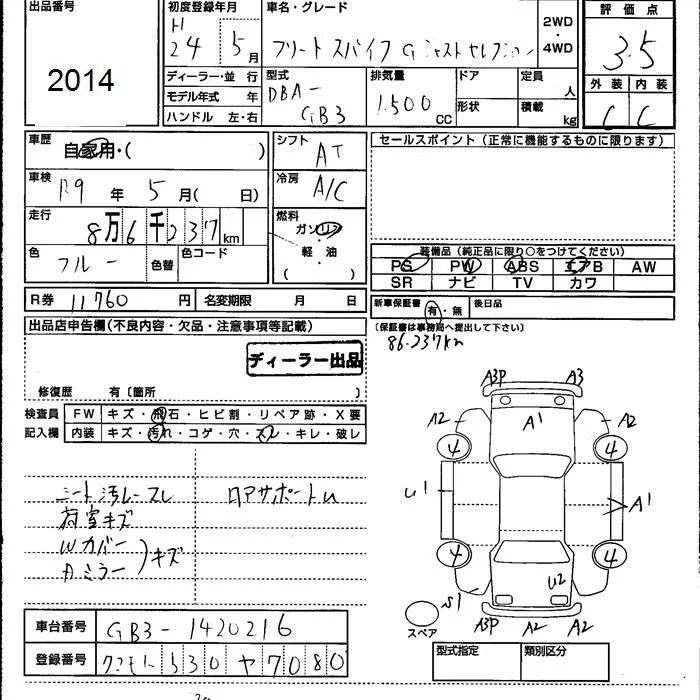 出品番号
2014
初度登録年月
H
24 5月
車名・グレード
フリード スパイク G ジャスト セレクション
2WD
・
4WD
評価点
3.5
外装 内装
C C
ディーラー・並行
モデル年式 年
ハンドル 左・右
型式
DBA-
GB3
排気量
1.500
CC
ドア
形状
定員
人
積載
kg
車歴
自家用・( )
シフト
AT
車検
R9 年 5 月( 日)
冷房
A/C
走行
8万6千237km
燃料
ガソリン
・
軽油
( ・ )
色
ブルー
色替
色コード
R券 11760 円
名変期限 月 日
セールスポイント (正常に機能するものに限ります)
装備品(純正品に限り○をつけてください)
PS PW ABS エアB AW
SR ナビ TV カワ
新車保証書
有・無
後日品
(保証書は事務局へ提出して下さい)
86.237km
出品店申告欄(不良内容・欠品・注意事項等記載)
ディーラー出品
修復歴 有〔箇所 〕
検査員
記入欄
FW キズ・飛石・ヒビ割・リペア跡・X要
内装 キズ・汚れ・コゲ・穴・スレ・キレ・破レ
シート汚レースレ
荷室キズ
Wカバー
Aミラー
キズ
ロアサポートU
A3P A3
A2 A1 A2
4 4
U1 A1
4 4
U2
S1
A3P A2 A2
スペア
車台番号 GB3-1420216
登録番号 クマモト 530 ヤ 7080
型式指定 類別区分